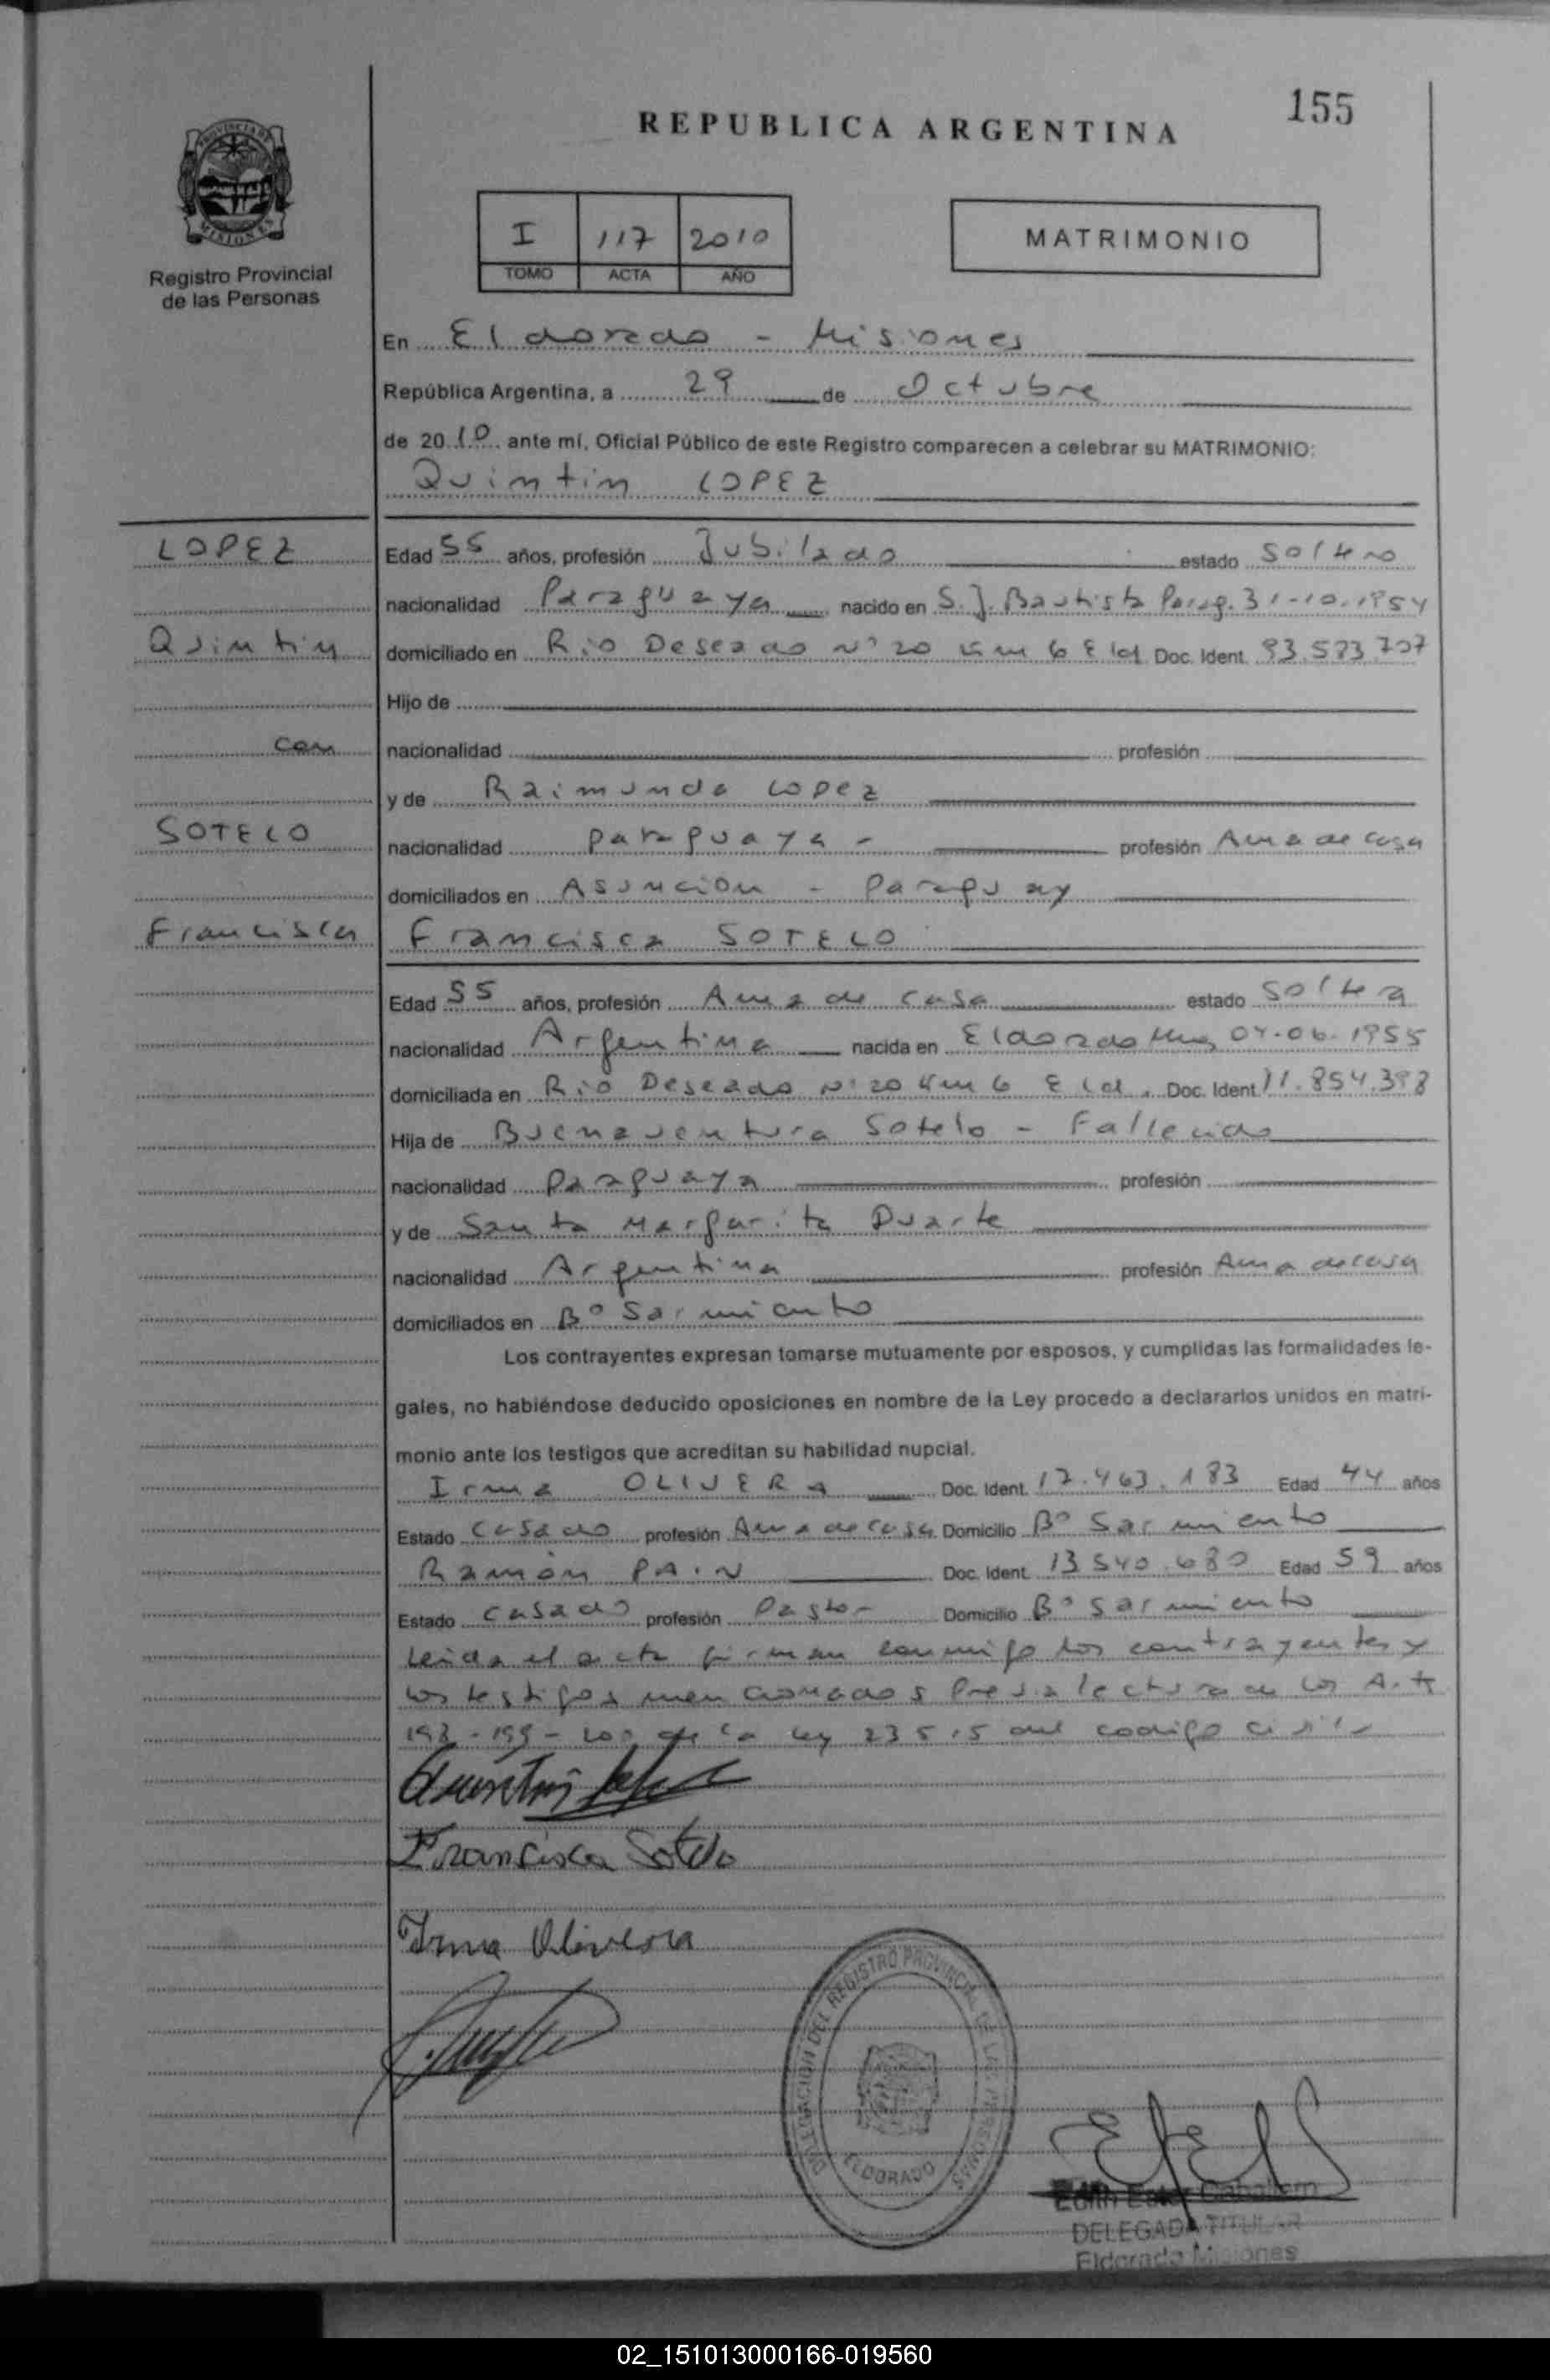 155
REPUBLICA ARGENTINA
PROVINCIA DE
MISIONES
Registro Provincial
de las Personas
I 117 2010
TOMO ACTA AÑO
MATRIMONIO
En Eldorado - Misiones
República Argentina, a 29 de Octubre
de 2010 ante mí, Oficial Público de este Registro comparecen a celebrar su MATRIMONIO:
Quintin LOPEZ
LOPEZ
Quintin
con
SOTELO
Francisca
Edad 55 años, profesión Jubilado estado Soltero
nacionalidad Paraguaya nacido en S. J. Bautista Parag. 31-10-1954
domiciliado en Rio Deseado Nº 20 Km 6 Eld Doc. Ident. 93.573.707
Hijo de
nacionalidad profesión
y de Raimunda Lopez
nacionalidad paraguaya - profesión Ama de casa
domiciliados en Asuncion - Paraguay
Francisca SOTELO
Edad 55 años, profesión Ama de casa estado Soltera
nacionalidad Argentina nacida en Eldorado Mnes 04-06-1955
domiciliada en Rio Deseado Nº 20 Km 6 Eld. Doc. Ident. 11.854.398
Hija de Buenaventura Sotelo - Fallecido
nacionalidad Paraguaya profesión
y de Santa Margarita Duarte
nacionalidad Argentina profesión Ama de casa
domiciliados en Bº Sarmiento
Los contrayentes expresan tomarse mutuamente por esposos, y cumplidas las formalidades le-
gales, no habiéndose deducido oposiciones en nombre de la Ley procedo a declararlos unidos en matri-
monio ante los testigos que acreditan su habilidad nupcial.
Irma OLIVERA Doc. Ident. 17.463.183 Edad 44 años
Estado Casado profesión Ama de casa Domicilio Bº Sarmiento
Ramón PAIN Doc. Ident. 13.540.680 Edad 59 años
Estado Casado profesión Pastor Domicilio Bº Sarmiento
Leida el acta firman conmigo los contrayentes y
los testigos mencionados Previa lectura de los Art
198-199-200 de la Ley 23515 del codigo civil-
Quintin Lopez
Francisca Sotelo
Irma Olivera
DELEGACION DEL REGISTRO PROVINCIAL DE LAS PERSONAS
ELDORADO
Edith Ester Caballero
DELEGADA TITULAR
Eldorado Misiones
02_151013000166-019560